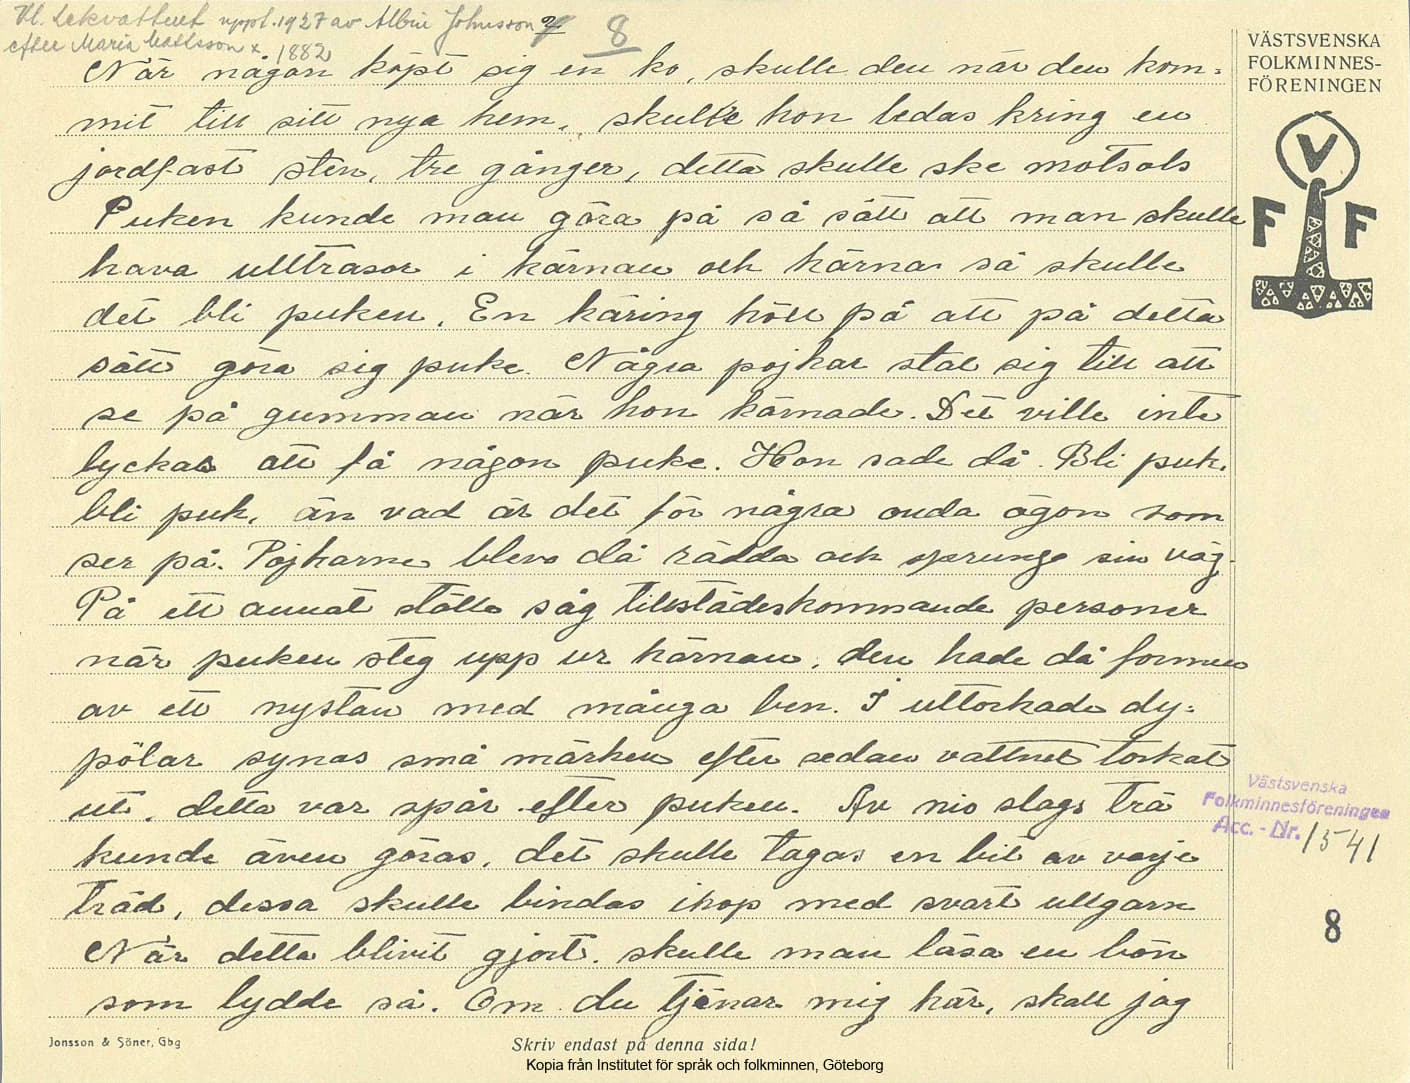 Vl. Lekvattnet uppt. 1927 av Albin Johnsson
8
efter Maria Mattsson f. 1882
VÄSTSVENSKA
FOLKMINNES-
FÖRENINGEN
V
F F
När någon köpt sig en ko, skulle den när den kom-
mit till sitt nya hem, skulle hon ledas kring en
jordfast sten, tre gånger, detta skulle ske motsols
Puken kunde man göra på så sätt att man skulle
hava ulltrasor i kärnan och kärnas så skulle
det bli puken. En käring höll på att på detta
sätt göra sig puke. Några pojkar stal sig till att
se på gumman när hon kärnade. Det ville inte
lyckas att få någon puke. Hon sade då. Bli puk,
bli puk, än vad är det för några onda ögon som
ser på. Pojkarne blevo då rädda och sprungo sin väg.
På ett annat ställe såg tillstädeskommande personer
när puken steg upp ur kärnan, den hade då formen
av ett nystan med många ben. I uttorkade dy-
pölar synas små märken efter sedan vattnet torkat
ut, detta var spår efter puken. Av nio slags trä
kunde även göras, det skulle tagas en bit av varje
träd, dessa skulle bindas ihop med svart ullgarn
När detta blivit gjort, skulle man läsa en bön
som lydde så. Om du tjänar mig här, skall jag
Västsvenska
Folkminnesföreningen
Acc. - Nr. 1541
8
Jonsson & Söner, Gbg
Skriv endast på denna sida!
Kopia från Institutet för språk och folkminnen, Göteborg